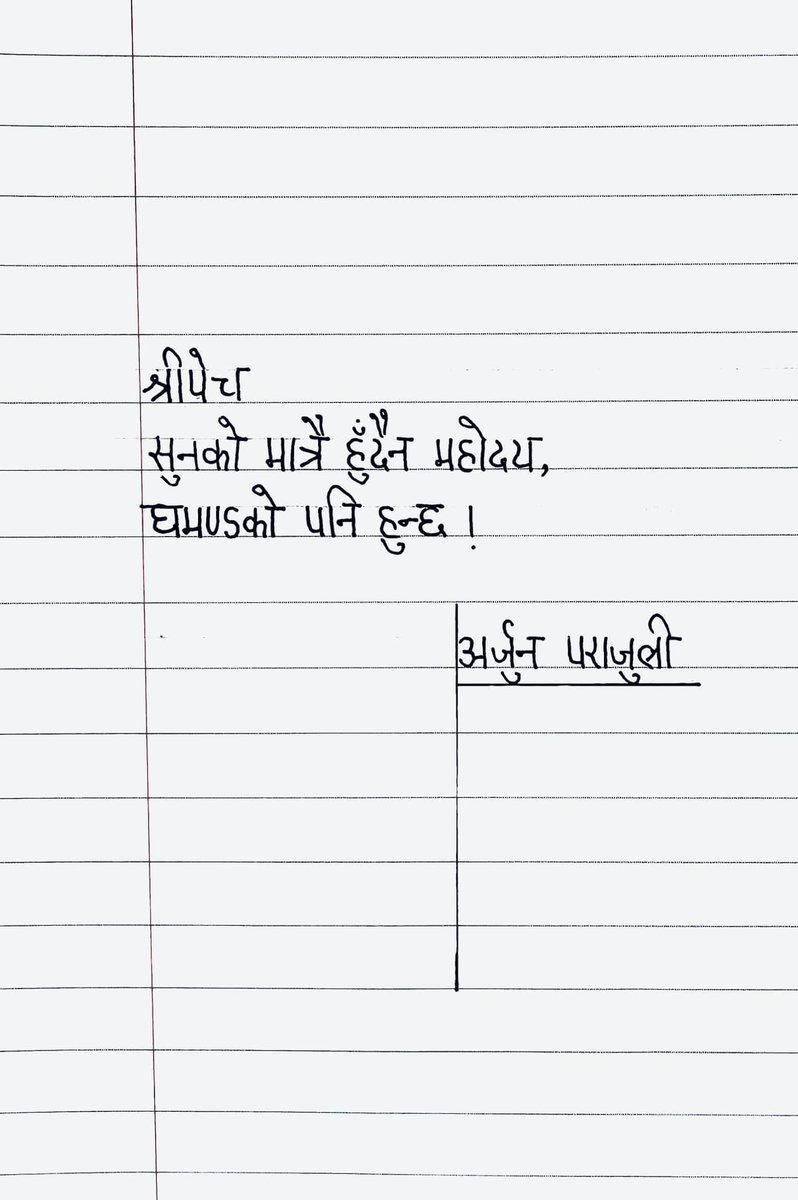 श्रीपेच
सुनको मात्रै हुँदैन महोदय,
घमण्डको पनि हुन्छ !
अर्जुन पराजुली